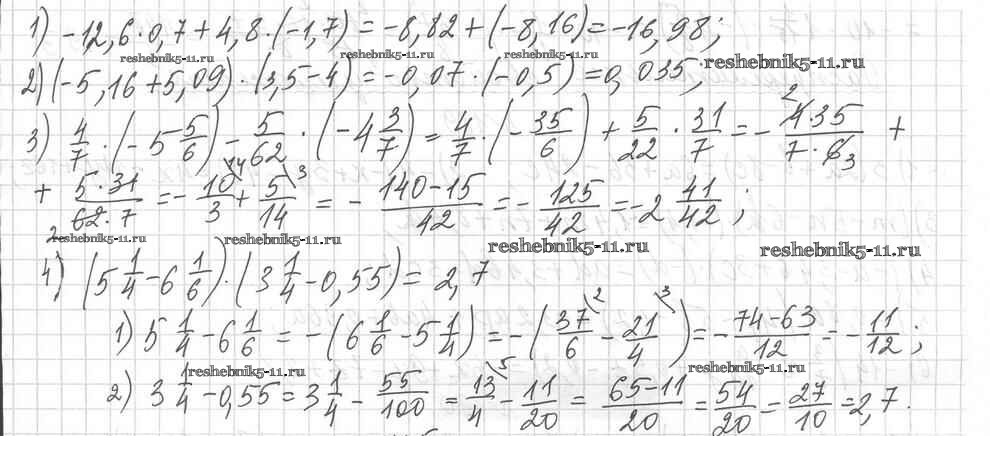 1) -12,6·0,7+4,8·(-1,7)=-8,82+(-8,16)=-16,98;
reshebnik5-11.ru reshebnik5-11.ru reshebnik5-11.ru
2) (-5,16+5,09)·(3,5-4)=-0,07·(-0,5)=0,035;
3) 4/7·(-5 5/6)-5/62·(-4 3/7)=4/7·(-35/6)+5/22·31/7=-4·35/7·6 2 3 +
+ 5·31/62·7 2 =-10/3 14 + 5/14 3 =-140-15/42=-125/42=-2 41/42;
reshebnik5-11.ru reshebnik5-11.ru reshebnik5-11.ru reshebnik5-11.ru
4) (5 1/4-6 1/6)·(3 1/4-0,55)=2,7
1) 5 1/4-6 1/6=-(6 1/6-5 1/4)=-(37/6 2 - 21/4 3)=-74-63/12=-11/12;
reshebnik5-11.ru reshebnik5-11.ru
2) 3 1/4-0,55=3 1/4-55/100=13/4 5 -11/20=65-11/20=54/20=27/10=2,7.